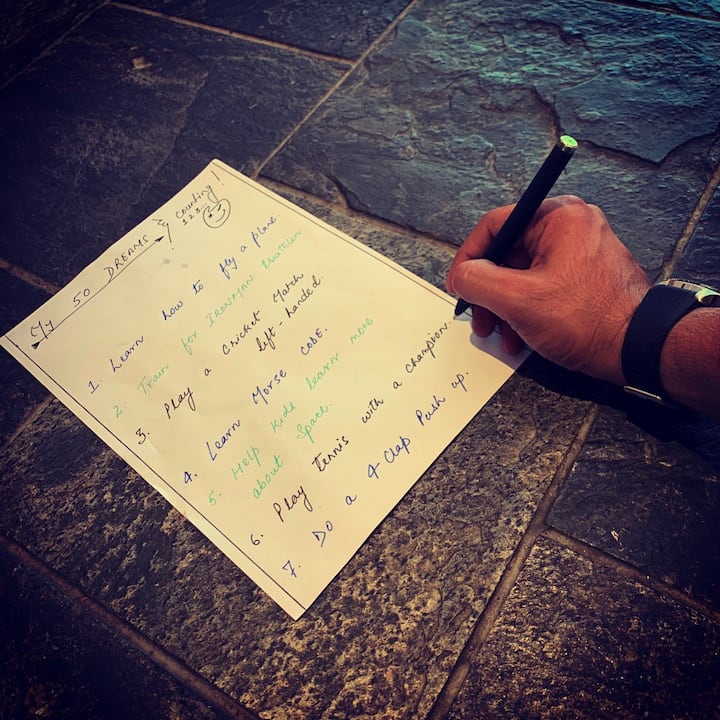 My 50 DREAMS & counting!
1 2 3...
1. Learn how to fly a plane.
2. Train for IRONMAN triathlon
3. Play a cricket Match
left-handed.
4. Learn Morse CODE.
5. Help kids learn more
about Space.
6. Play tennis with a champion.
7. Do a 4-Clap Push up.